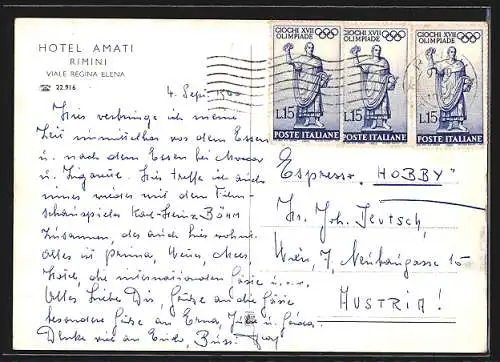 HOTEL AMATI
RIMINI
VIALE REGINA ELENA
☎ 22.916
4. Sept. 1960
GIOCHI XVII OLIMPIADE
L.15
POSTE ITALIANE
GIOCHI XVII OLIMPIADE
L.15
POSTE ITALIANE
GIOCHI XVII OLIMPIADE
L.15
POSTE ITALIANE
Hier verbringe ich meine
Zeit unmittelbar vor dem Essen
u. nach dem Essen bei
u. Hier treffe ich auch
immer wieder mit dem Film-
schauspieler Karl-Heinz Böhm
zusammen, der auch hier wohnt.
Alles ist prima, Meer,
Hotel, die internationalen Gäste u.s.w.
Alles Liebe Dir, Grüße an die Gäste
besondere Grüße an Erna, u.
Denke viel an Euch, Bussi
Espresso „HOBBY"
Hr. Joh. Jeutsch,
Wien, 7, Neubaugasse 15
AUSTRIA!